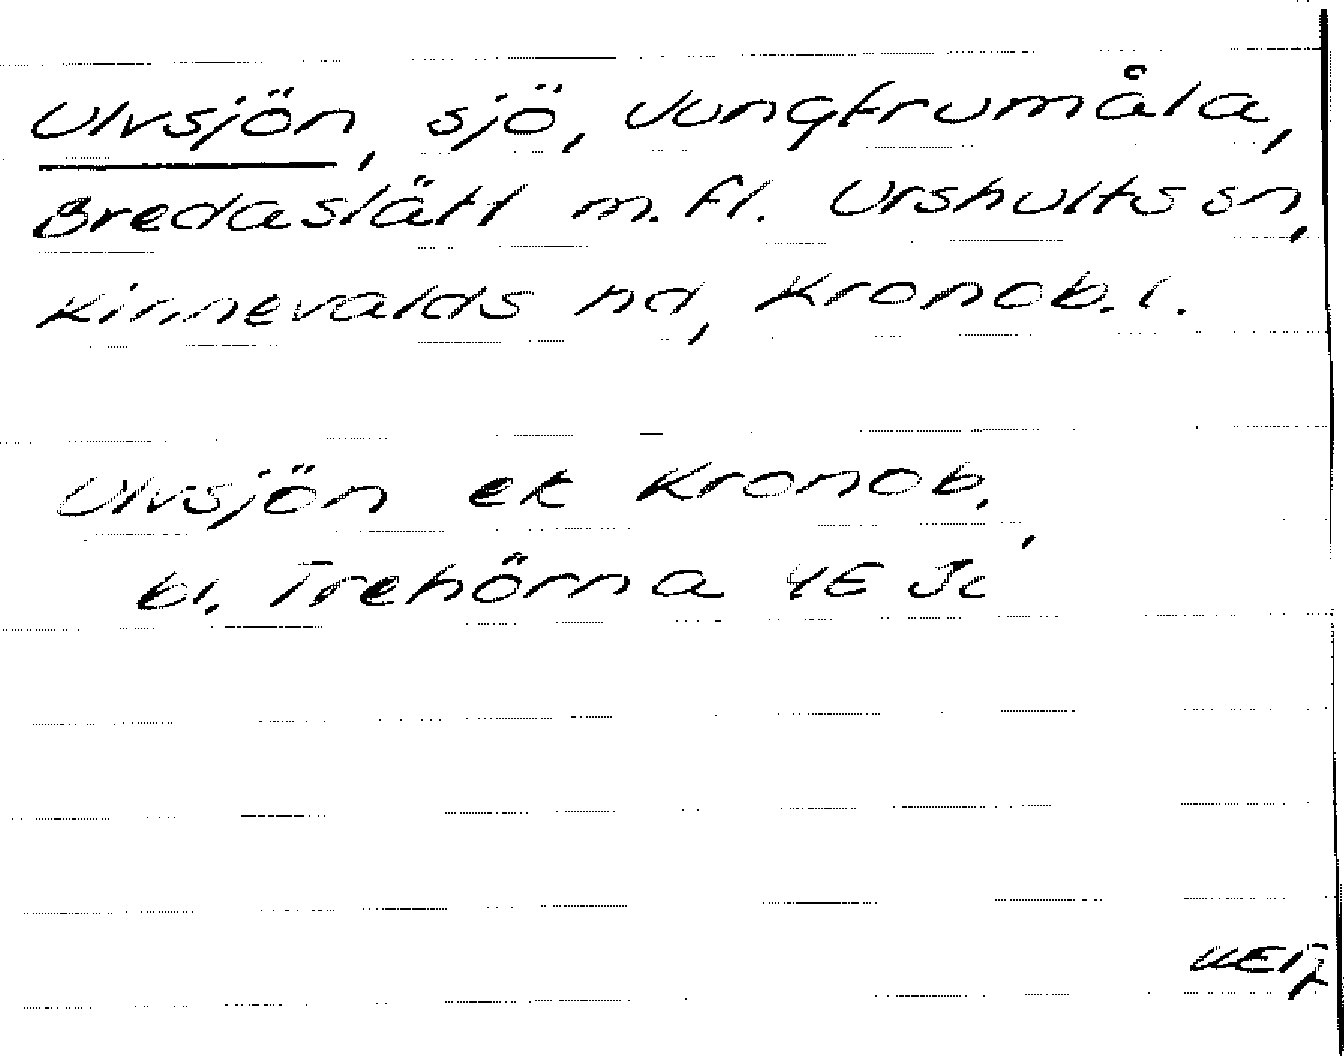 Ulvsjön, sjö, Jungfrumåla,
Bredaslätt m.fl. Urshults sn,
Kinnevalds hd, Kronob. l.
Ulvsjön ek Kronob.,
bl. Trehörna 4E Jc